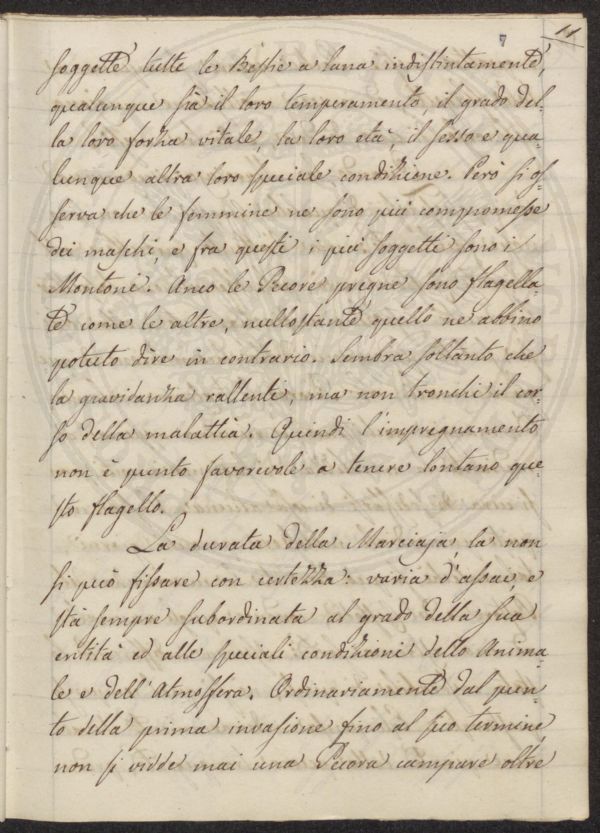 7 11
soggette tutte le Bestie a lana indistintamente,
qualunque sia il loro temperamento il grado del=
la loro forza vitale, la loro età, il sesso e qua=
lunque altra loro speciale condizione. Però si os=
serva che le femmine ne sono più compromesse
dei maschi, e fra questi i più soggetti sono i
Montoni. Anco le Pecore pregne sono flagella=
te come le altre, nullostante quello ne abbino
potuto dire in contrario. Sembra soltanto che
la gravidanza rallenti, ma non tronchi il cor=
so della malattia. Quindi l'impregnamento
non è punto favorevole a tenere lontano que=
sto flagello.
La durata della Marciaja, la non
si può fissare con certezza: varia d'assai, e
stà sempre subordinata al grado della sua
entità ed alle speciali condizioni dello Anima=
le e dell'Atmosfera. Ordinariamente dal pun=
to della prima invasione fino al suo termine,
non si vidde mai una Pecora campare oltre